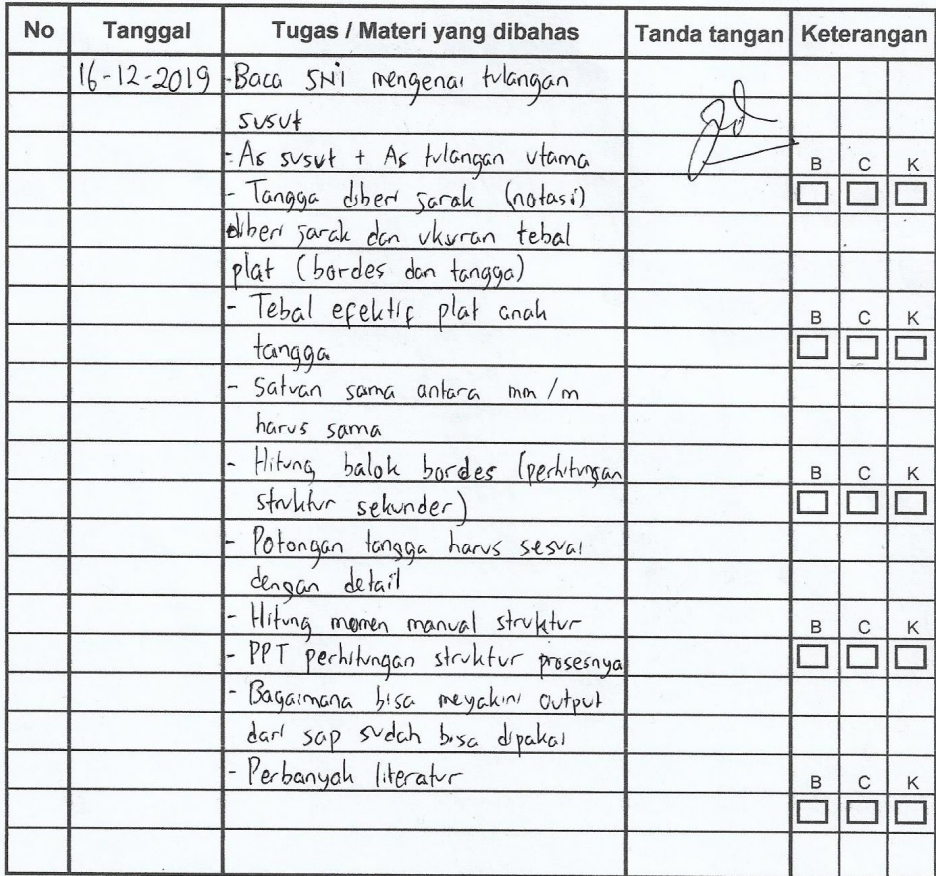 No Tanggal Tugas / Materi yang dibahas Tanda tangan Keterangan
16-12-2019 - Baca SNI mengenai tulangan
susut
- As susut + As tulangan utama
B C K
- Tangga diberi jarak (notasi)
diberi jarak dan ukuran tebal
plat (bordes dan tangga)
- Tebal efektif plat anak
B C K
tangga
- Satuan sama antara mm/m
harus sama
- Hitung balok bordes (perhitungan
B C K
struktur sekunder)
- Potongan tangga harus sesuai
dengan detail
- Hitung momen manual struktur
B C K
- PPT perhitungan struktur prosesnya
- Bagaimana bisa meyakini output
dari sap sudah bisa dipakai
- Perbanyak literatur
B C K